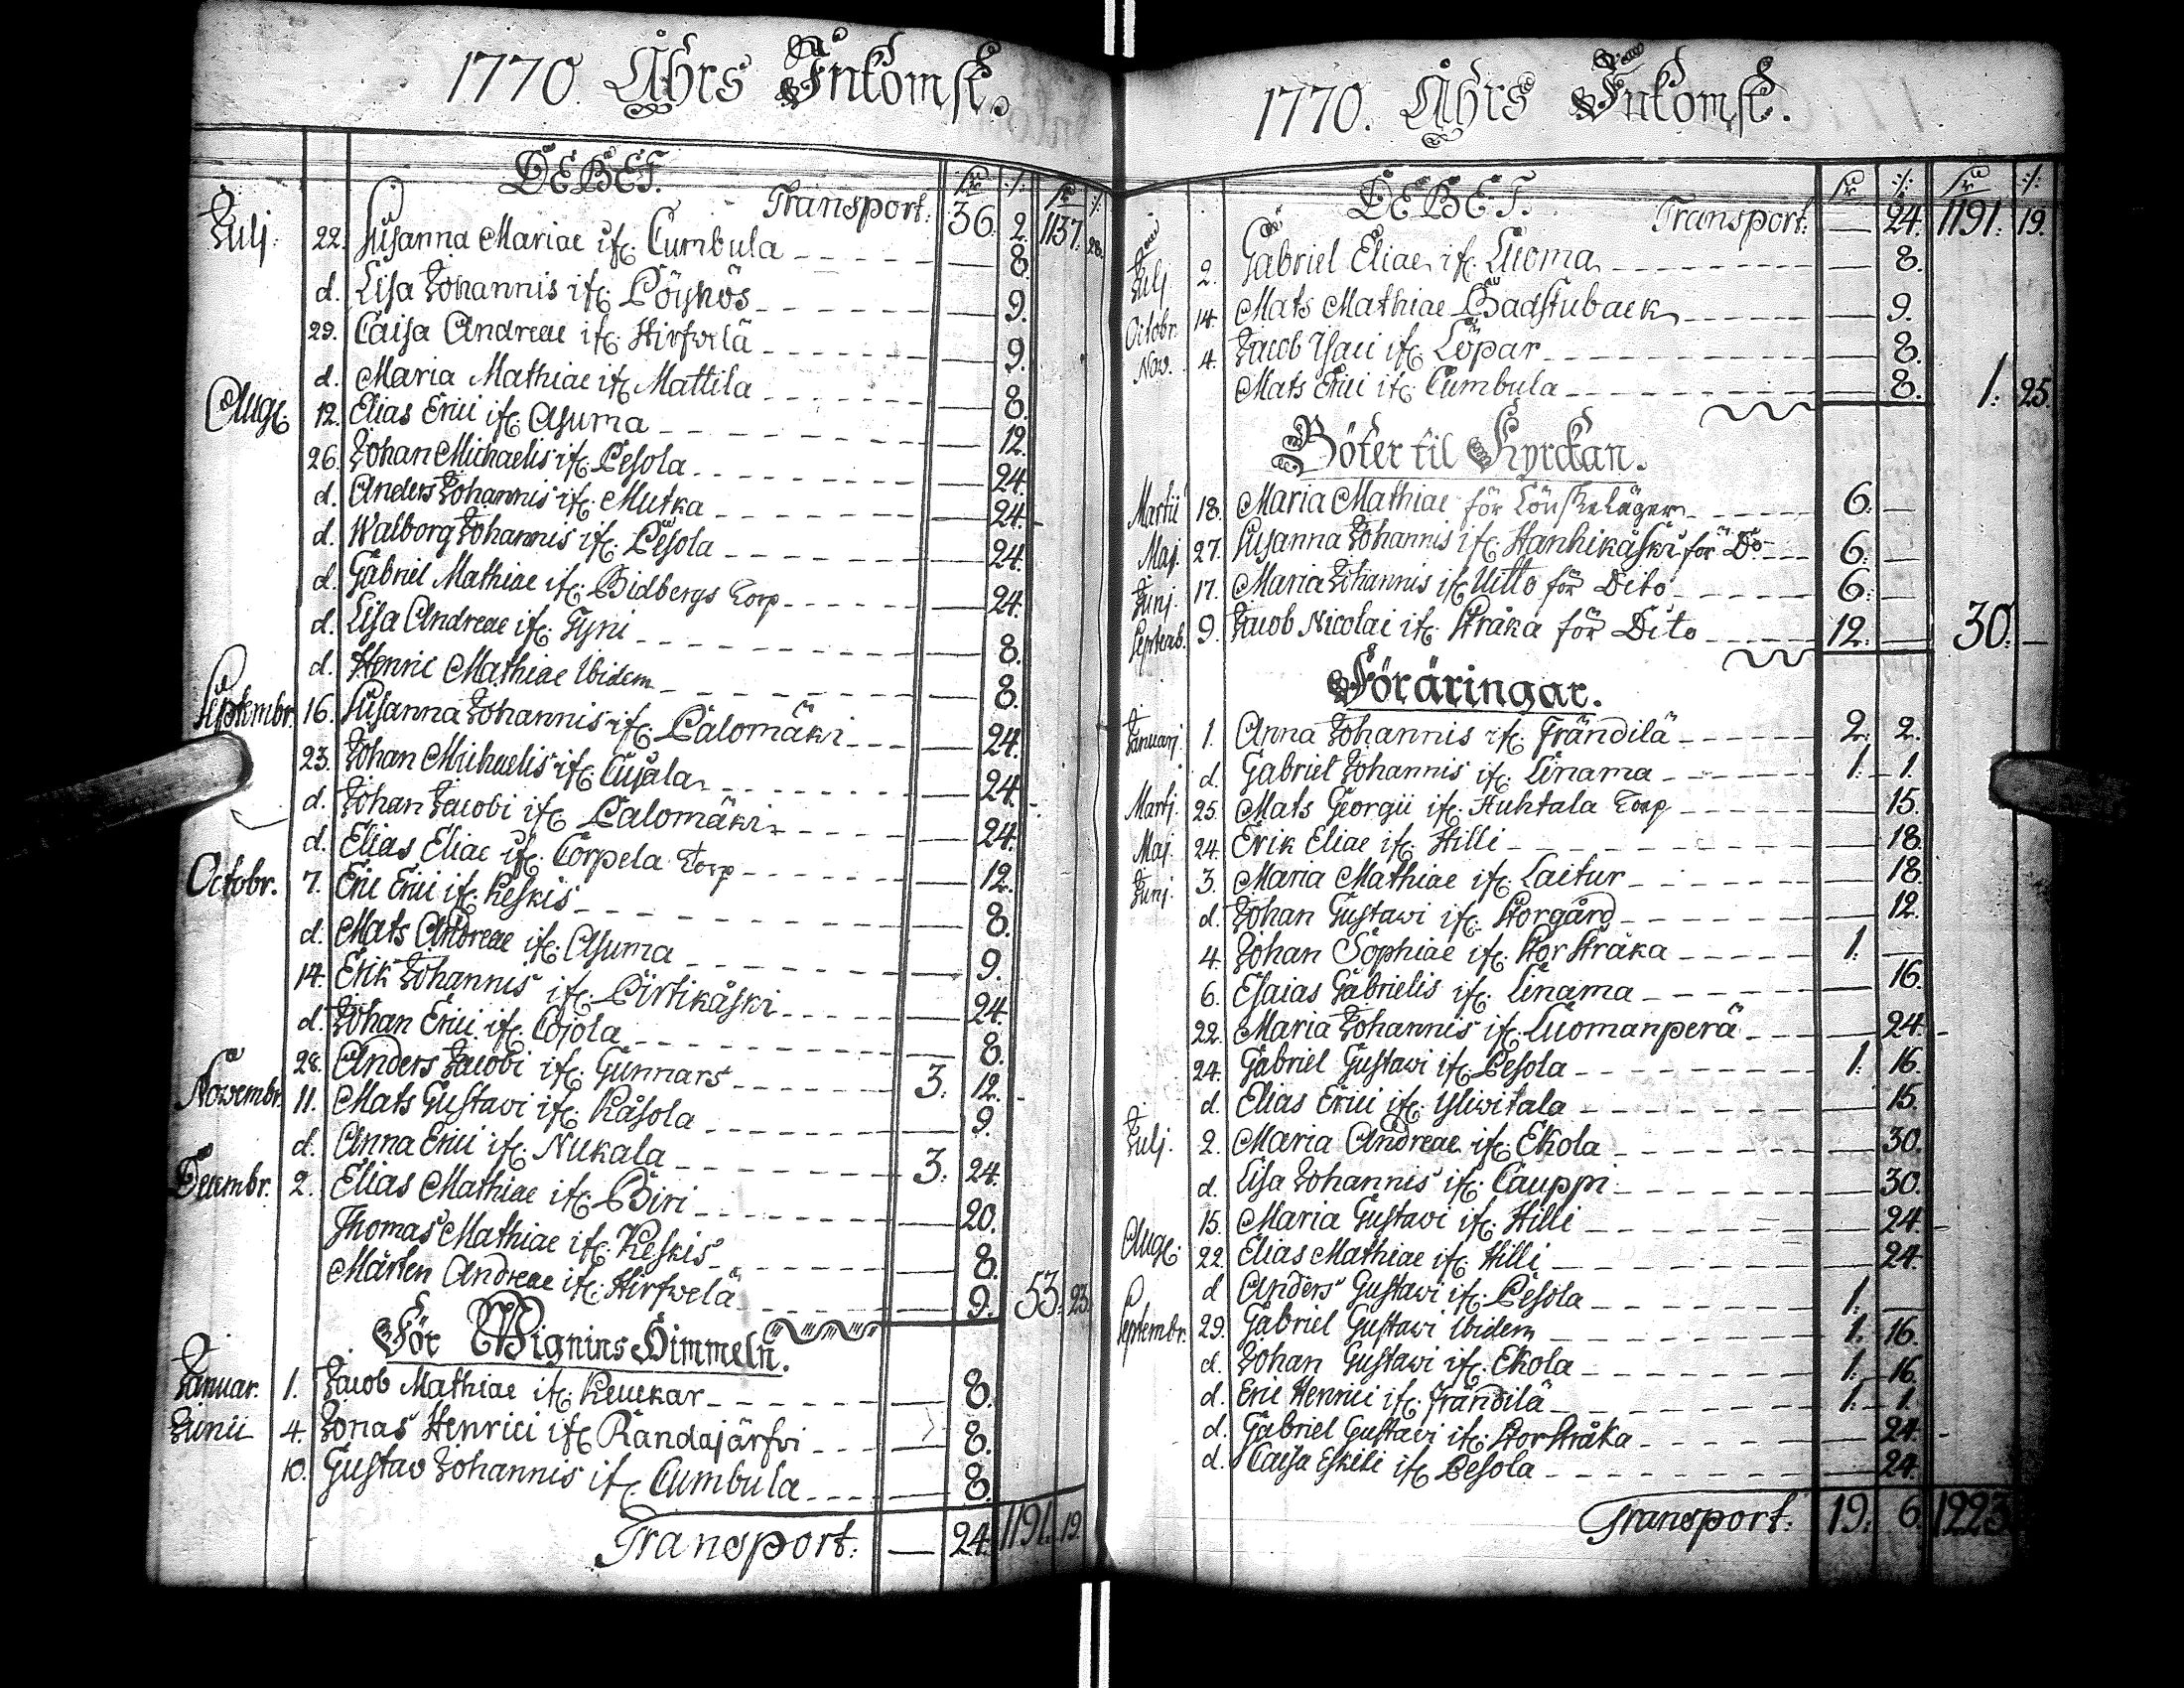 1770. Åhrs Inkomst.
DEBET.
Transport. 36. 2. 1137. 28.
Julj. 22. Susanna Mariae if. Cumbula — 8.
d. Lisa Johannis if. Pöyhös — 9.
29. Caisa Andreae if. Hirfwelä — 9.
d. Maria Mathiae if. Mattila — 8.
Aug. 12. Elias Erici if. Asuma — 12.
26. Johan Michaelis if. Pesola — 24.
d. Anders Johannis if. Mutka — 24.
d. Walborg Johannis if. Pesola — 24.
d. Gabriel Mathiae if. Bidbergs Torp — 24.
d. Lisa Andreae if. Tyni — 8.
d. Henric Mathiae Ibidem — 8.
Septembr. 16. Susanna Johannis if. Palomäki — 24.
23. Johan Michaelis if. Cujala — 24.
d. Johan Jacobi if. Palomäki — 24.
d. Elias Eliae if. Corpela Torp — 12.
Octobr. 7. Eric Erici if. Keskis — 8.
d. Mats Andreae if. Asuma — 9.
14. Erik Johannis if. Pirtikåski — 24.
d. Johan Erici if. Cojola — 8.
28. Anders Jacobi if. Gunnars 3. 12.
Novembr. 11. Mats Gustavi if. Kåsola — 9.
d. Anna Erici if. Nukala 3. 24.
Decembr. 2. Elias Mathiae if. Biri — 20.
Thomas Mathiae if. Keskis — 8.
Mårten Andreae if. Hirfwelä — 9. 53. 23.
För Wignins Himmeln.
Januar. 1. Jacob Mathiae if. Keuckar — 8.
Junii 4. Jonas Henrici if. Kandajärfvi — 8.
10. Gustav Johannis if. Cumbula — 8.
Transport. — 24. 1191. 19.
1770. Åhrs Inkomst.
DEBET.
Transport. — 24. 1191. 19.
Julj 2. Gabriel Eliae if. Luoma — 8.
Octobr. 14. Mats Mathiae Badstuback — 9.
Nov. 4. Jacob Isaci if. Löpar — 8.
Mats Erici if. Cumbula — 8. 1. 25.
Böter til Kyrckan.
Martii 18. Maria Mathiae för Löuskeläger 6. —
Maj. 27. Susanna Johannis if. Hanhikåski för Do 6. —
Junj. 17. Maria Johannis if. Uitto för Dito 6. —
Septemb. 9. Jacob Nicolai if. Stråka för Dito 12. — 30. —
Föräringar.
Januarj. 1. Anna Johannis if. Frändilä 2. 2.
d. Gabriel Johannis if. Linama 1. 1.
Martj. 25. Mats Georgii if. Huhtala Torp — 15.
Maj. 24. Erik Eliae if. Hilli — 18.
Junj. 3. Maria Mathiae if. Laitur — 18.
d. Johan Gustavi if. Storgård — 12.
4. Johan Sophiae if. Stor Stråka 1. —
6. Esaias Gabrielis if. Linama — 16.
22. Maria Johannis if. Luomanperä — 24.
24. Gabriel Gustavi if. Pesola 1. 16.
d. Elias Erici if. Yliwitala — 15.
Julj. 2. Maria Andreae if. Ekola — 30.
d. Lisa Johannis if. Cauppi — 30.
15. Maria Gustavi if. Hilli — 24.
Aug. 22. Elias Mathiae if. Hilli — 24.
d Anders Gustavi if. Pesola 1. —
Septembr. 29. Gabriel Gustavi Ibidem 1. 16.
d. Johan Gustavi if. Ekola 1. 16.
d. Eric Henrici if. Frändilä 1. 1.
d. Gabriel Gustavi if. Stor Stråka — 24.
d. Caisa Eskili if. Pesola — 24.
Transport. 19. 6. 1223